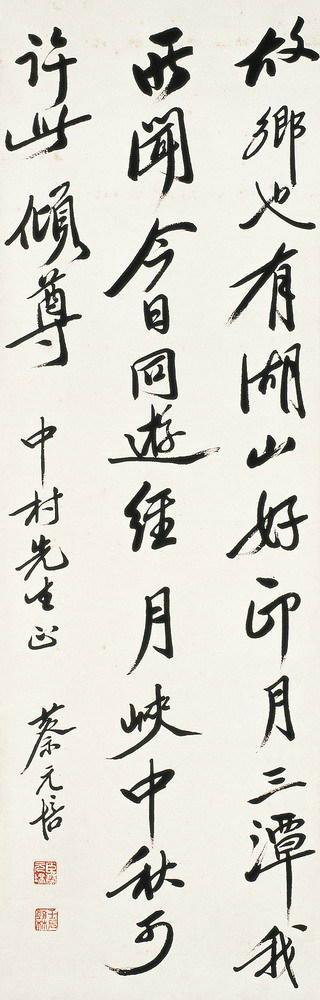 故鄉也有湖山好印月三潭我
所聞今日同遊經月峽中秋可
許此傾尊
中村先生正
蔡元培